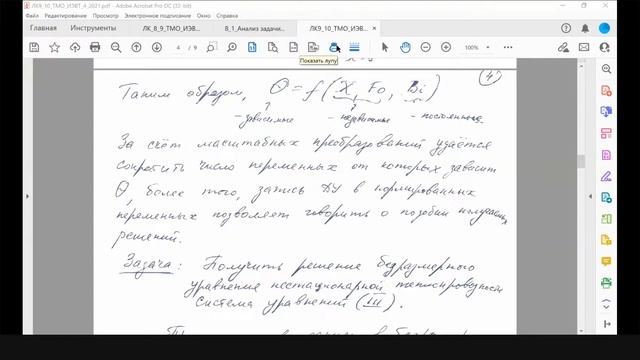 ЛК9_10_ТМО_ИЭВТ_4_2021.pdf - Adobe Acrobat Pro DC (32-bit)
Файл Редактирование Просмотр Электронные подписания Окно Справка
Главная Инструменты ЛК_8_9_ТМО_ИЭВ... 8_1_Анализ задачи... ЛК9_10_ТМО_ИЭВ... ×
4 / 9 100%
Показать лупу
4
Таким образом, Θ = f(X, Fo, Bi)
- зависимые - независимые - постоянные.
За счёт масштабных преобразований удаётся
сократить число переменных от которых зависит
Θ, более того, запись ДУ в нормированных
переменных позволяет говорить о подобии получаемых
решений.
Задача: Получить решение безразмерного
уравнения нестационарной теплопроводности
система уравнений (III).